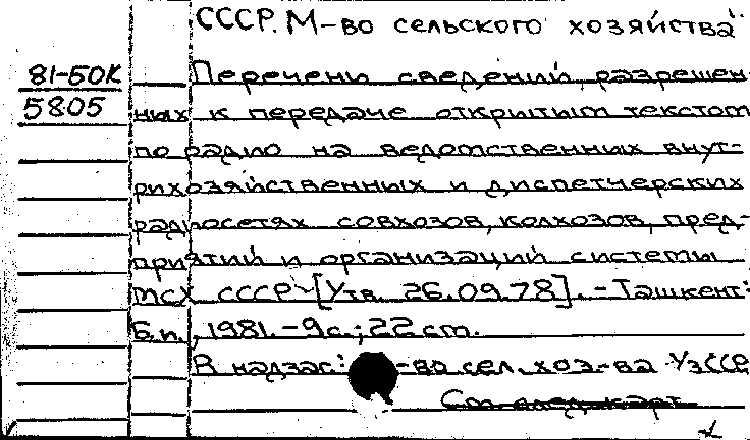 СССР. М-во сельского хозяйства
81-50К
5805
Перечень сведений, разрешен-
ных к передаче открытым текстом
по радио на ведомственных внут-
рихозяйственных и диспетчерских
радиосетях совхозов, колхозов, пред-
приятий и организаций системы
МСХ СССР [Утв. 26.09.78]. - Ташкент:
Б.и., 1981. - 9с.; 22 см.
В надзаг: -во сел. хоз-ва УзССР
См. след. карт.